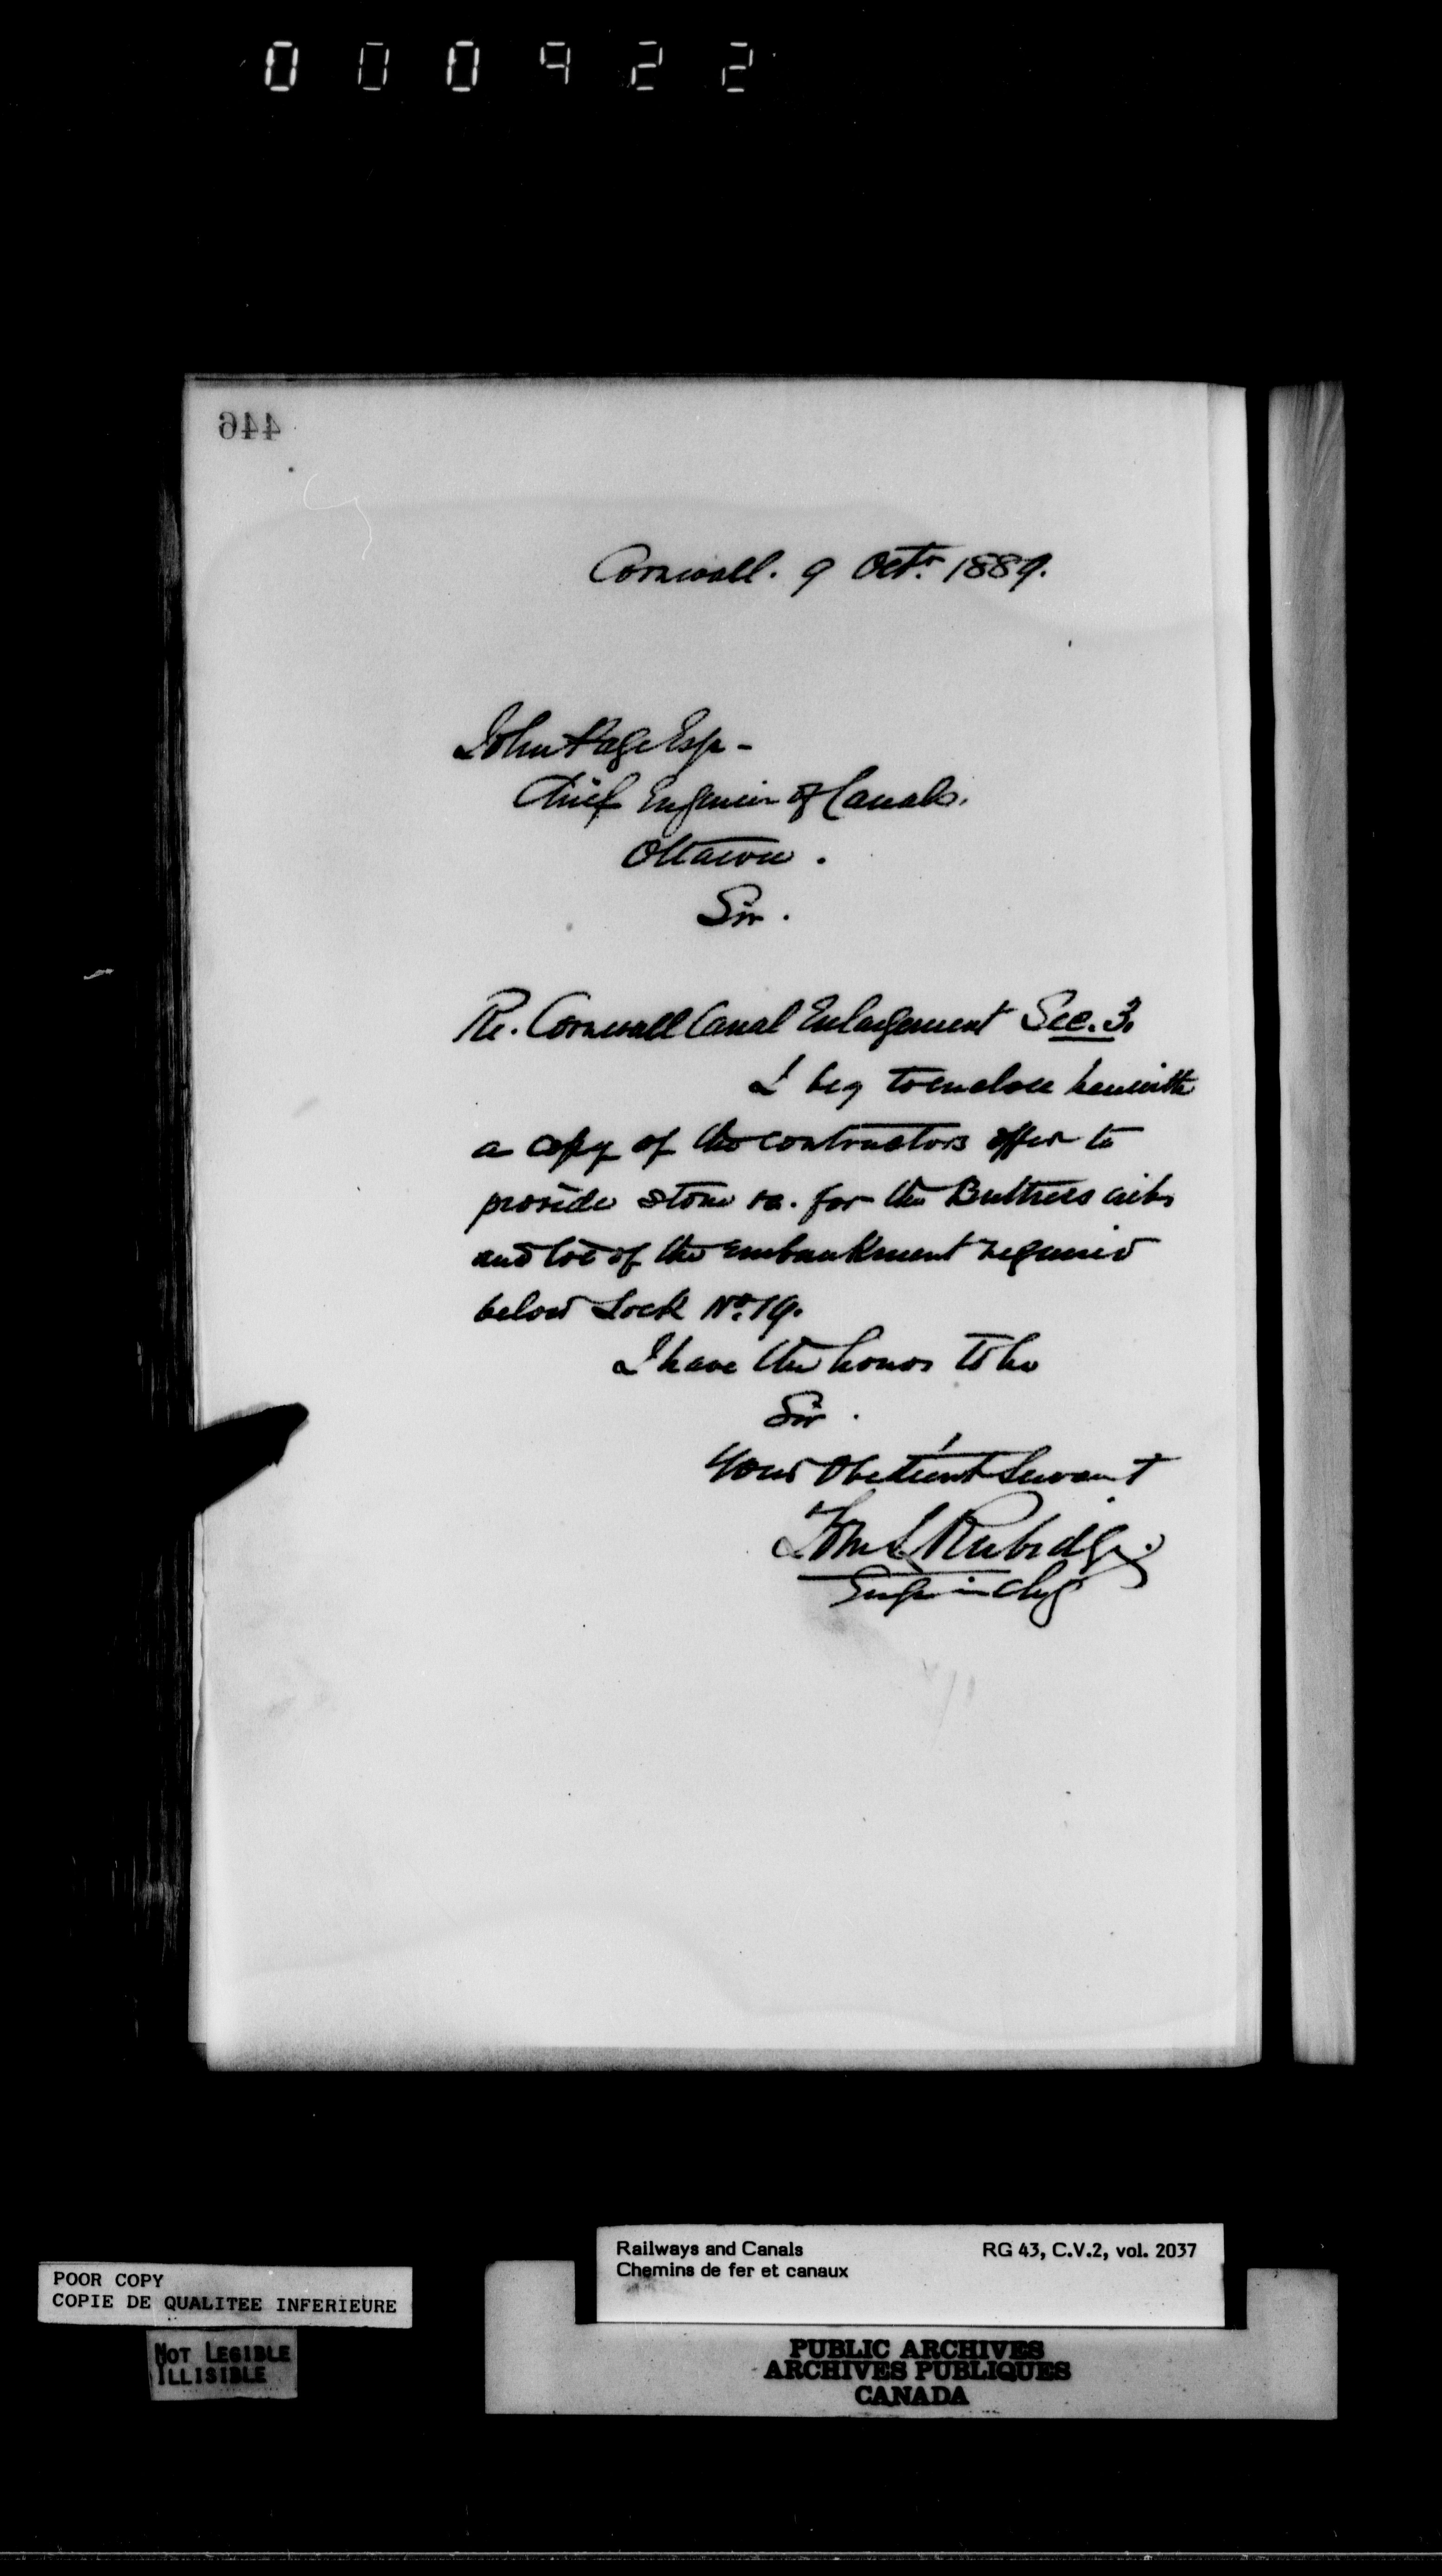 000922
446
Cornwall. 9 Octr. 1889.
John Page Esqr -
Chief Engineer of Canals.
Ottawa.
Sir.
Re. Cornwall Canal Enlargement Sec. 3.
I beg to enclose herewith
a copy of the contractors offer to
provide stone &a. for the Buttress cribs
and toe of the embankment required
below Lock No. 19.
I have the honor to be
Sir.
Your Obedient Servant
Tom S Rubidge.
Engr in Chg
Railways and Canals RG 43, C.V.2, vol. 2037
Chemins de fer et canaux
POOR COPY
COPIE DE QUALITEE INFERIEURE
NOT LEGIBLE
ILLISIBLE
PUBLIC ARCHIVES
ARCHIVES PUBLIQUES
CANADA